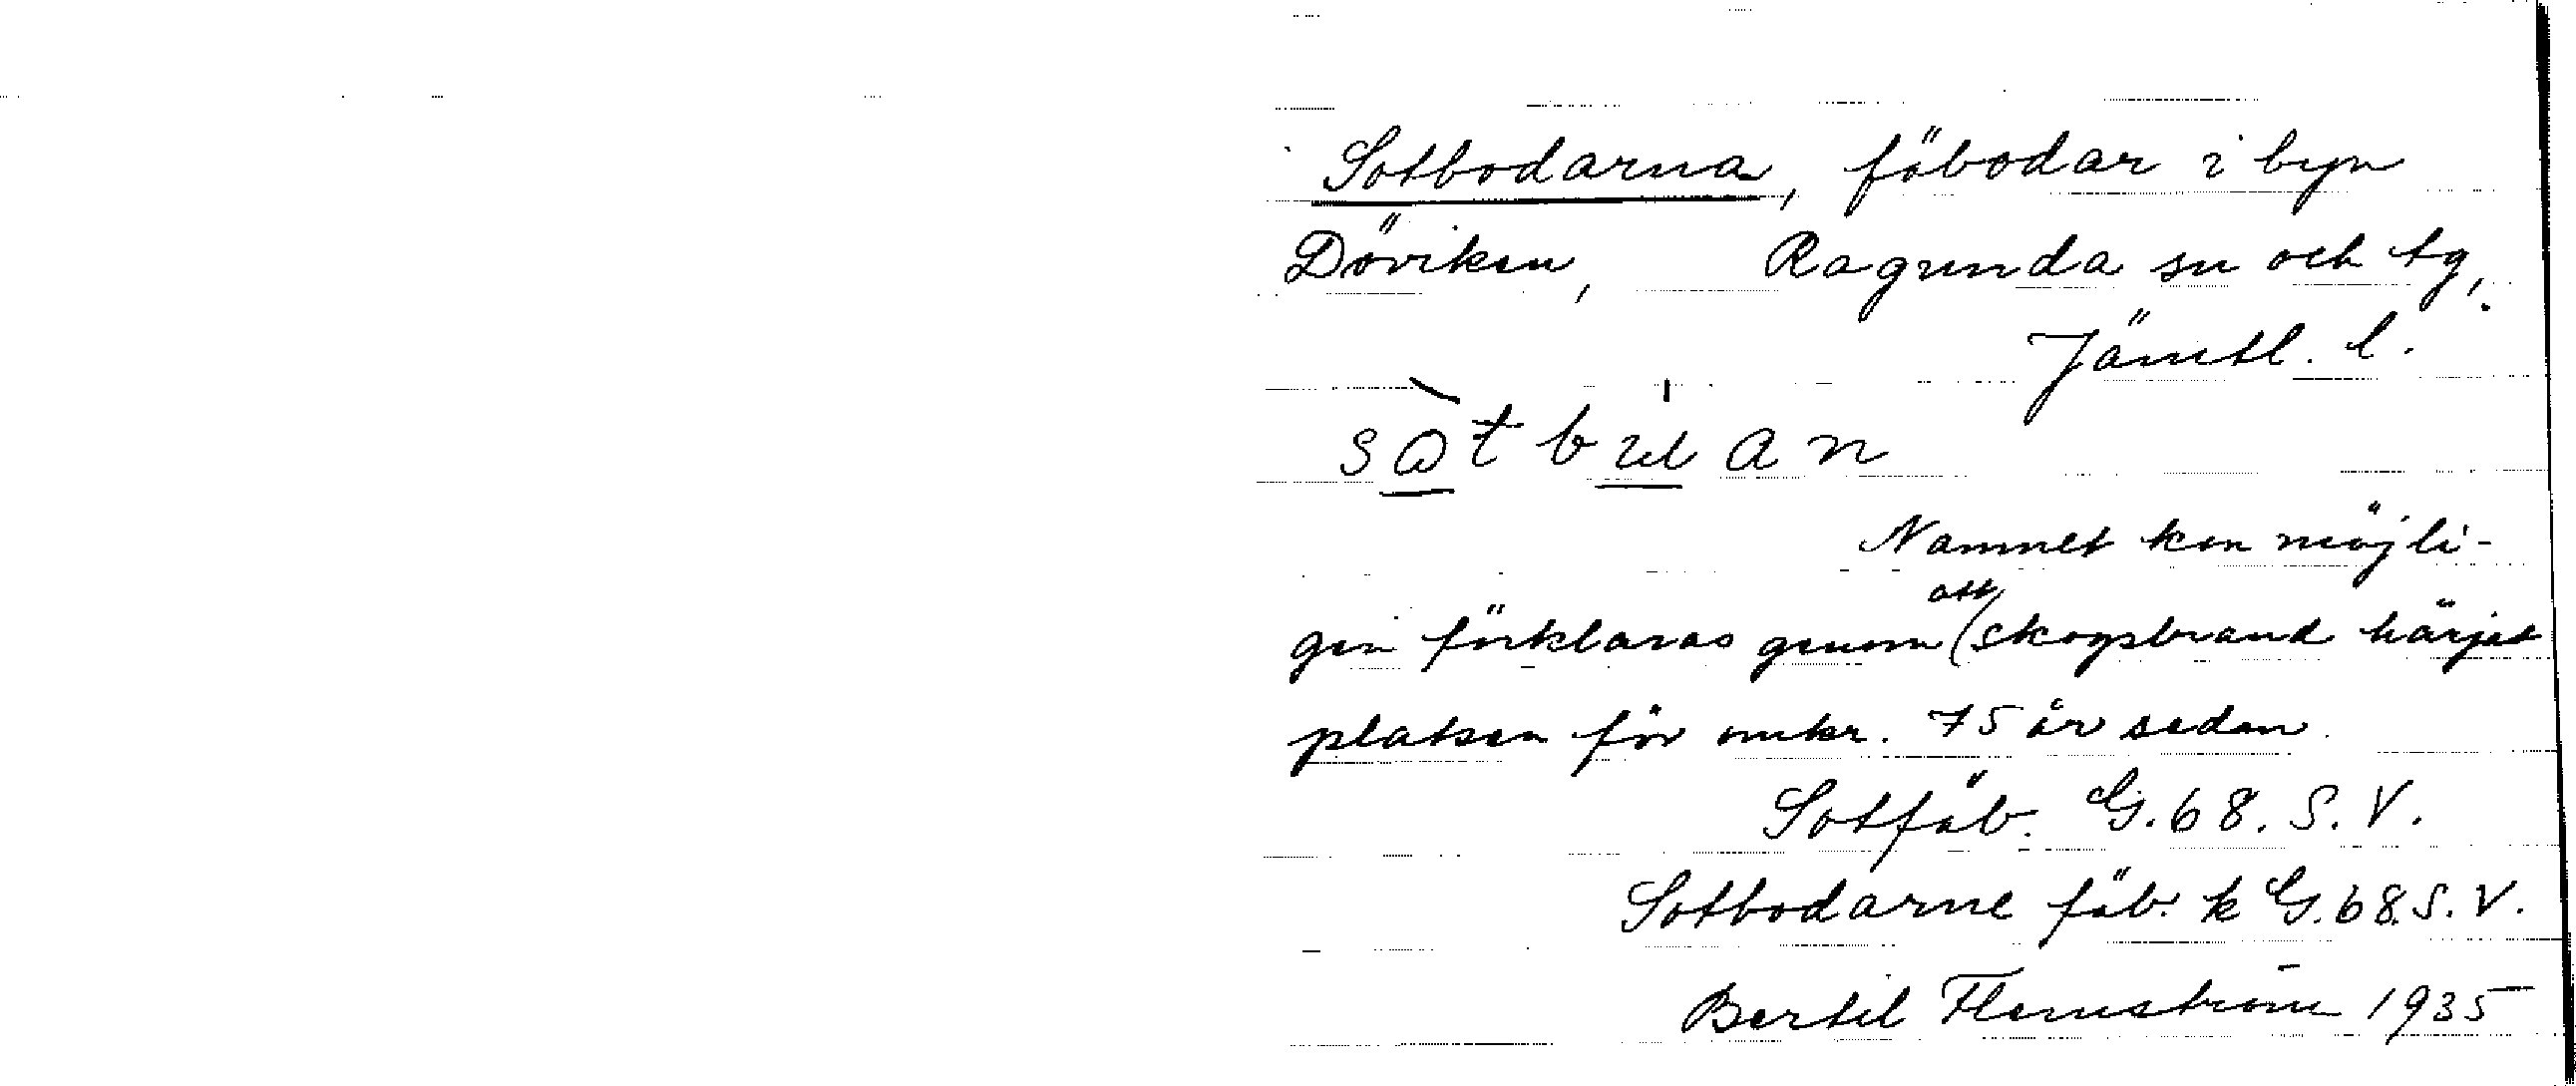 Sotbodarna, fäbodar i byn
Döviken, Ragunda sn och tg,
Jämtl. l.
Namnet kan möjli-
gen förklaras genom att skogsbrand härjat
platsen för omkr. 75 år sedan.
Sotfäb. G.68. S.V.
Sotbodarne fäb. k G.68.S.V.
Bertil Flemström 1935